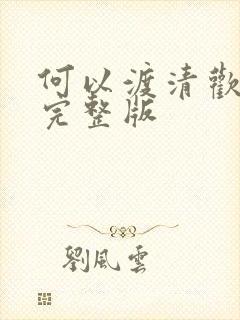 何以渡清歡
完整版
劉風雲